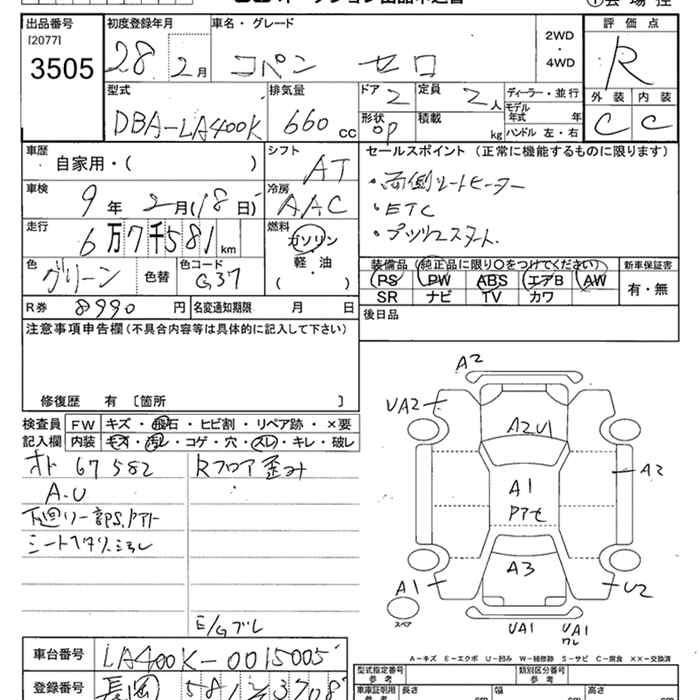 出品番号 初度登録年月 車名・グレード 2WD・4WD 評価点
[2077]
3505 28年 2月 コペン セロ R
型式 排気量 ドア 2 定員 2人 ディーラー・並行 外装 内装
DBA-LA400K 660cc 形状 OP 積載 kg モデル年式 年 ハンドル 左・右 C C
車歴 自家用・( ) シフト AT セールスポイント (正常に機能するものに限ります)
車検 9年 2月(18日) 冷房 AAC ・両側シートヒーター
・ETC
走行 6万7千581km 燃料 ガソリン 軽・油 ( ) ・プッシュスタート
色 グリーン 色替 色コード G37
装備品 (純正品に限り○をつけてください) 新車保証書
PS PW ABS エアB AW 有・無
SR ナビ TV カワ
R券 8990円 名変通知期限 月 日 後日品
注意事項申告欄 (不具合内容等は具体的に記入して下さい)
修復歴 有 [箇所 ]
検査員記入欄 FW キズ・飛石・ヒビ割・リペア跡・×要
内装 キズ・汚レ・コゲ・穴・スレ・キレ・破レ
オド 67582 Rフロア歪み
A.U
シートヘタリ、コスレ
E/Gブレ
A2
UA2
A2U1
A1
A2
A3
A1
U2
スペア
UA1 UA1
ワレ
A-キズ E-エクボ U-凹み W-補修跡 S-サビ C-腐食 ××-交換済
車台番号 LA400K-0015005
型式指定番号 参考 類別区分番号 参考
登録番号 長岡 581 3708
車庫証明用 参考 長さ cm 幅 cm 高さ cm